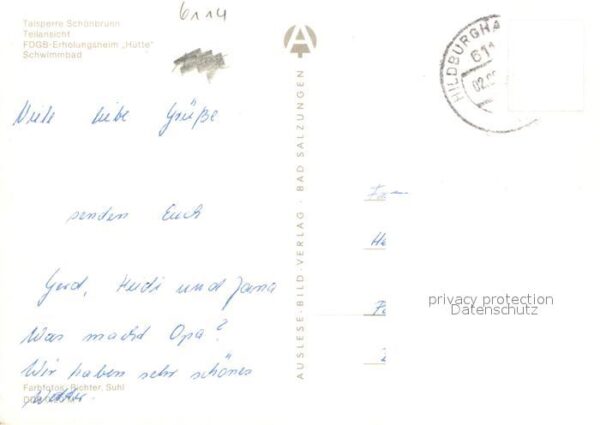 6114
Talsperre Schönbrunn
Teilansicht
FDGB-Erholungsheim „Hütte"
Schwimmbad
HILDBURGHA
611
02.
Viele liebe Grüße
senden Euch
Gerd, Heidi und Jana
Was macht Opa?
Wir haben sehr schönes
Wetter.
Farbfotos: Richter, Suhl
AUSLESE-BILD-VERLAG · BAD SALZUNGEN
privacy protection
Datenschutz